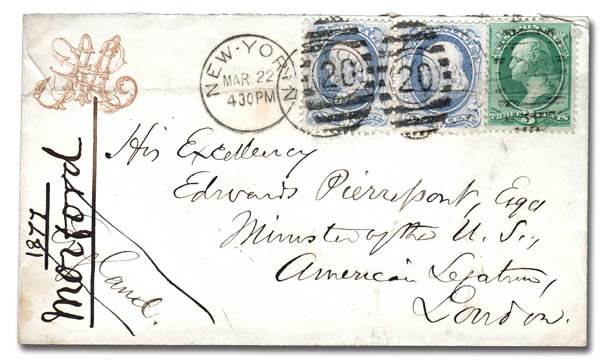 NEW-YORK
MAR.22
430PM
20
20
3
THREE CENTS
His Excellency
Edwards Pierrepont, Esqr
Minister of the U.S.,
American Legation,
London.
1877
Morford